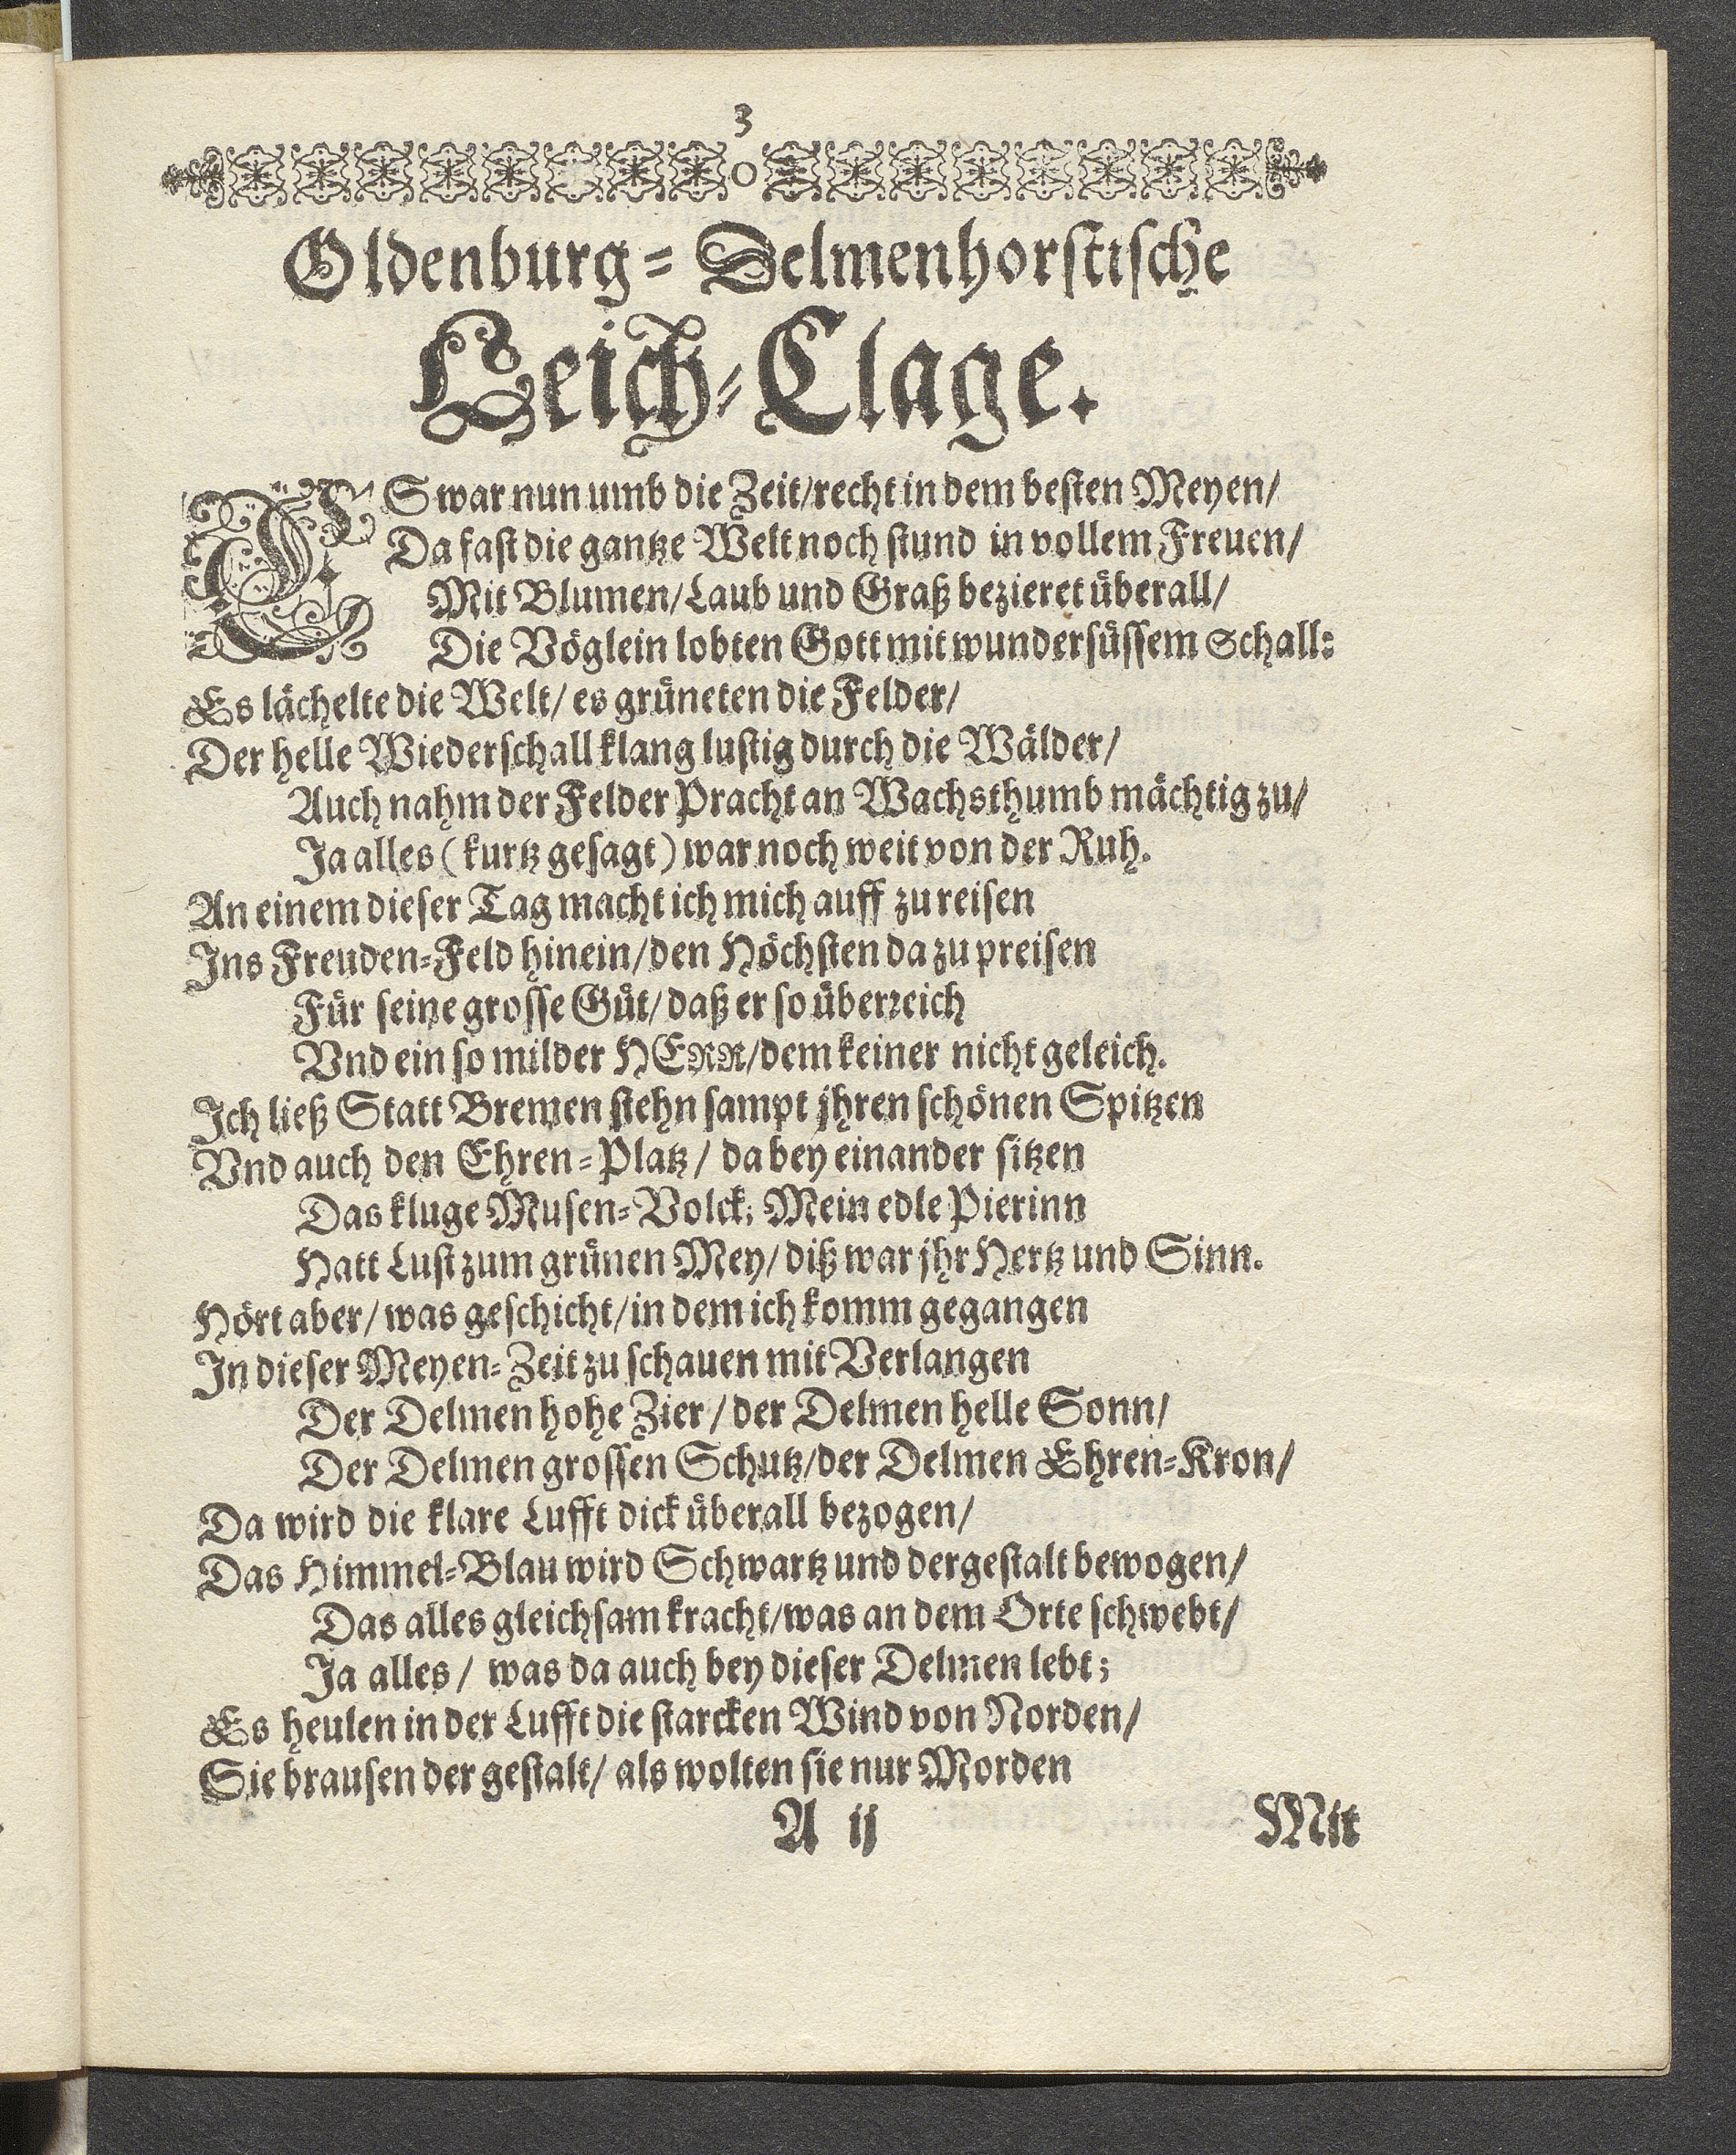 3
Oldenburg-Delmenhorstische
Leich-Clage.
ES war nun umb die Zeit/ recht in dem besten Meyen/
Da fast die gantze Welt noch stund in vollem Freuen/
Mit Blumen/ Laub und Graß bezieret überall/
Die Vöglein lobten Gott mit wundersüssem Schall:
Es lächelte die Welt/ es grüneten die Felder/
Der helle Wiederschall klang lustig durch die Wälder/
Auch nahm der Felder Pracht an Wachsthumb mächtig zu/
Ja alles (kurtz gesagt) war noch weit von der Ruh.
An einem dieser Tag macht ich mich auff zu reisen
Ins Freuden-Feld hinein/ den Höchsten da zu preisen
Für seine grosse Güt/ daß er so überreich
Vnd ein so milder HERR/ dem keiner nicht geleich.
Ich ließ Statt Bremen stehn sampt jhren schönen Spitzen
Vnd auch den Ehren-Platz/ da bey einander sitzen
Das kluge Musen-Volck; Mein edle Pierinn
Hatt Lust zum grünen Mey/ diß war jhr Hertz und Sinn.
Hört aber/ was geschicht/ in dem ich komm gegangen
In dieser Meyen-Zeit zu schauen mit Verlangen
Der Delmen hohe Zier/ der Delmen helle Sonn/
Der Delmen grossen Schutz/ der Delmen Ehren-Kron/
Da wird die klare Lufft dick überall bezogen/
Das Himmel-Blau wird Schwartz und dergestalt bewogen/
Das alles gleichsam kracht/ was an dem Orte schwebt/
Ja alles/ was da auch bey dieser Delmen lebt;
Es heulen in der Lufft die starcken Wind von Norden/
Sie brausen der gestalt/ als wolten sie nur Morden
A ij
Mit